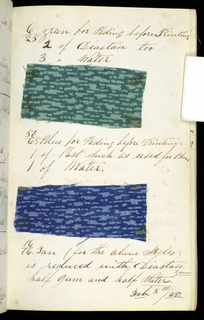 6 green for Pading before Printing
25
2 of Diastase too
3 " Water
50
Blue for Pading before Printing
1 of Past such as used for Blue
1 of Water.
Tan (for the above Styles
is reduced with Diastase
half Gum and half Water.